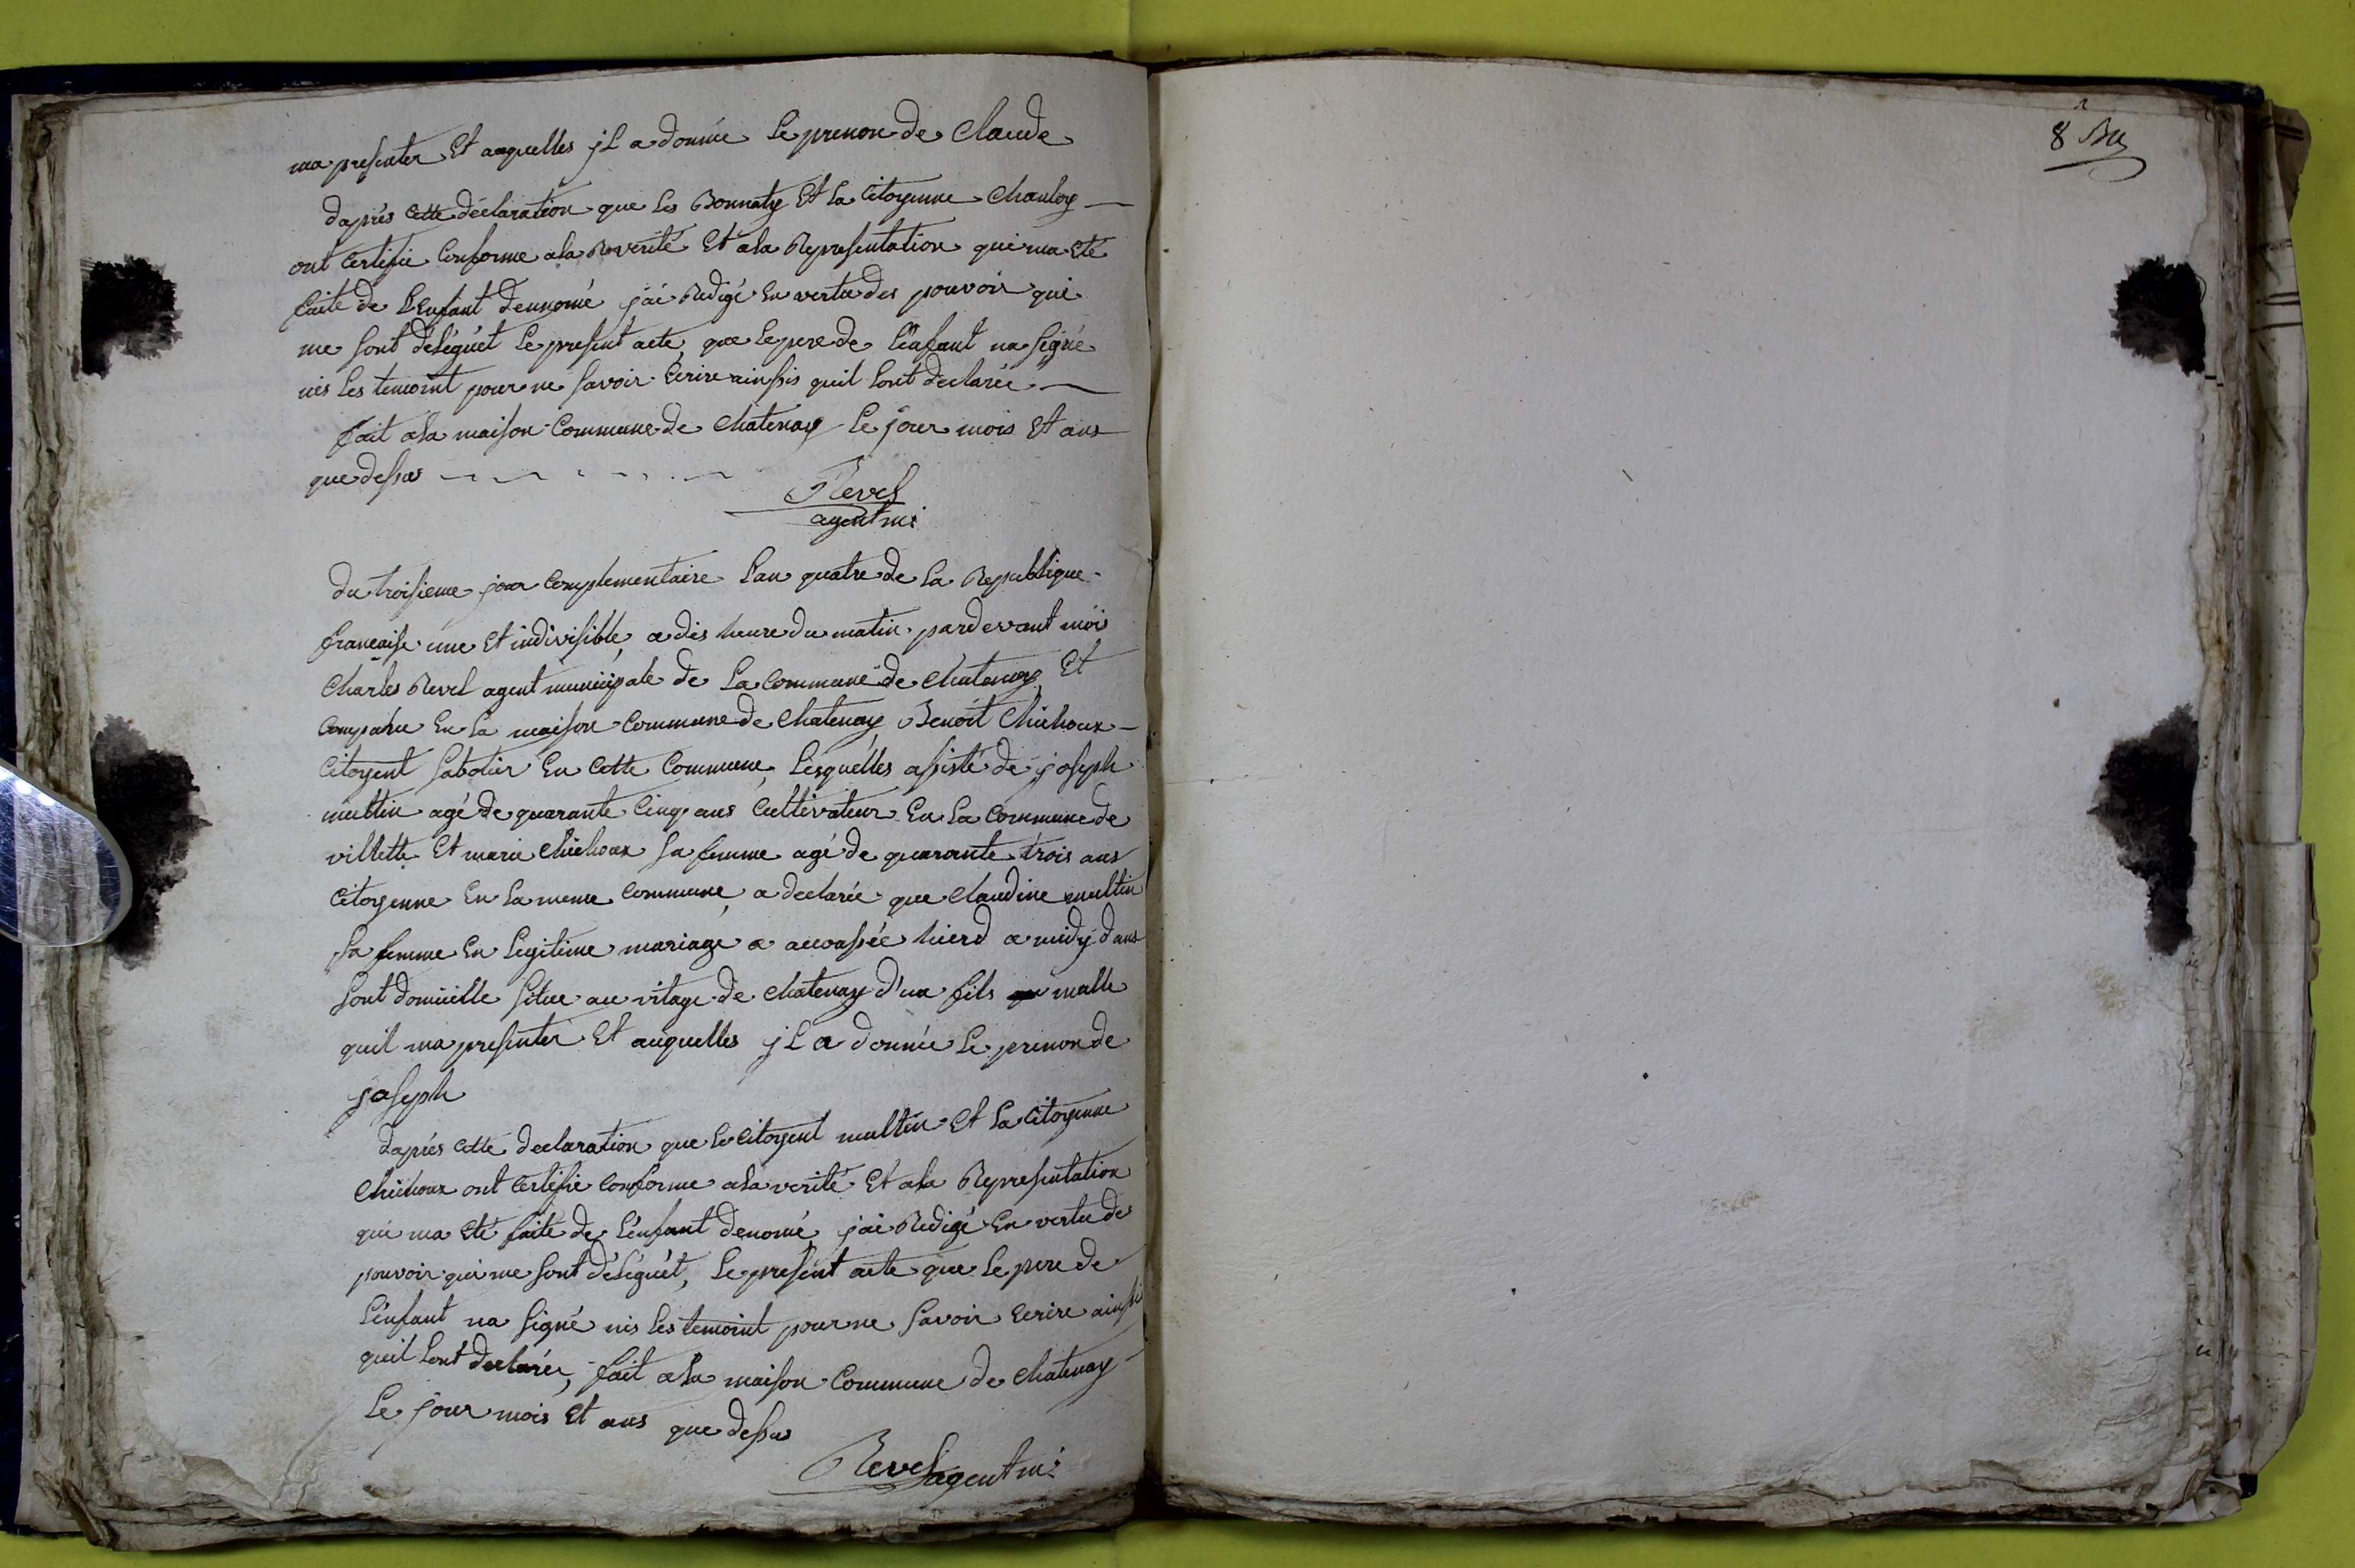 ma presenter Et auquelles jl a donnée Le prenon de Claude
daprés Cette déclaration que Les Bonnaty Et La Citoyenne Chanloy
ont Certifie Conforme ala verité Et ala Representation qui ma Eté
faite de L'Enfant dennomé j'ai Redigé En vertu des pouvoir qui
me sont deléguét Le present acte, que Le pere de L'enfant na signé
nis Les temoint pour ne savoir Ecrire ainssis quil Lont declarée
fait ala maison Commune de Chatenay Le jour mois Et ans
que dessus
Revel
agent m:
du troisieme jour Complementaire L'an quatre de La Republique
francaise une Et indivisible, a dis heure du matin pardevant mois
Charles Revel agent municipale de La Commune de Chatenay, Et
Comparu En La maison Commune de Chatenay, Benoit
Citoyent sabotier En Cette Commune, Lesquelles assisté de joseph
multin agé de quarante Cinq ans Cultivateur En La Commune de
villette Et marie sa femme agé de quarante trois ans
Citoyenne En La meme Commune, a declarée que Claudine multin
sa femme En Legitime mariage a accoussée hierd a midy dans
sont domicille situe au vilage de Chatenay d'un fils malle
quil ma presenter Et auquelles jl a donnée Le prenon de
joseph
daprés Cette declaration que Le Citoyent multin Et La Citoyenne
ont Certifie Conforme ala verité Et ala Representation
qui ma Eté faite de L'enfant denomé, jai Redigé En vertu de
pouvoir qui me sont déléguét, Le present acte que Le pere de
L'enfant na signé nis Les temoint pour ne savoir Ecrire ainssi
quil Lont declarée, fait ala maison Commune de Chatenay
Le jour mois Et ans que dessus
Revel agent m:
8